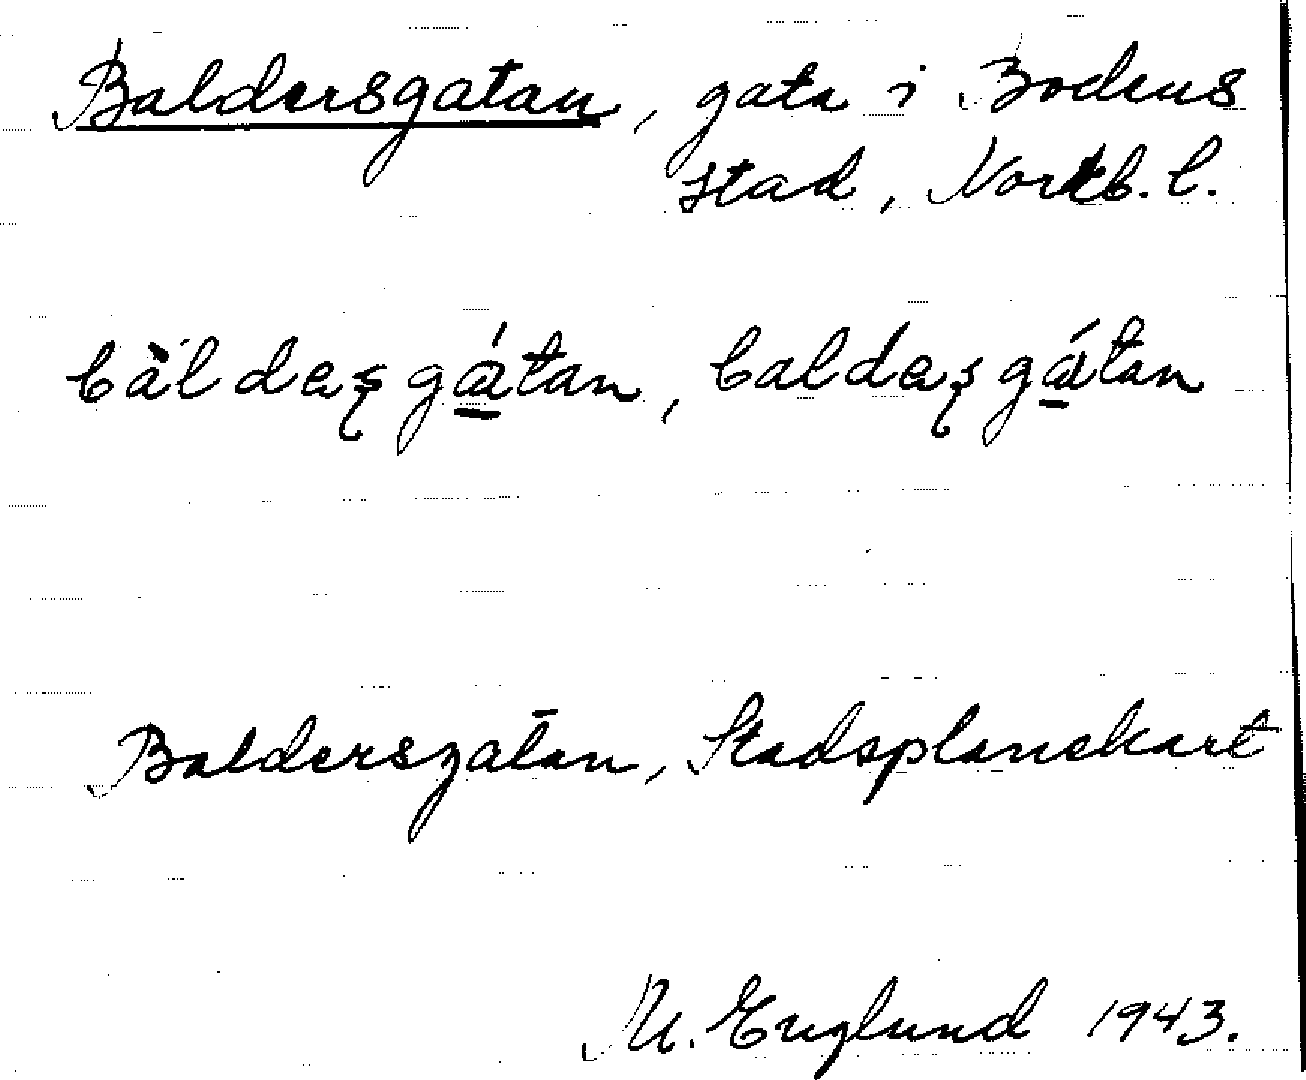 Baldersgatan, gata i Bodens
stad, Norrb. l.
bàldaşgátan, baldaşgátan
Baldersgatan, Stadsplanekart
M. Englund 1943.